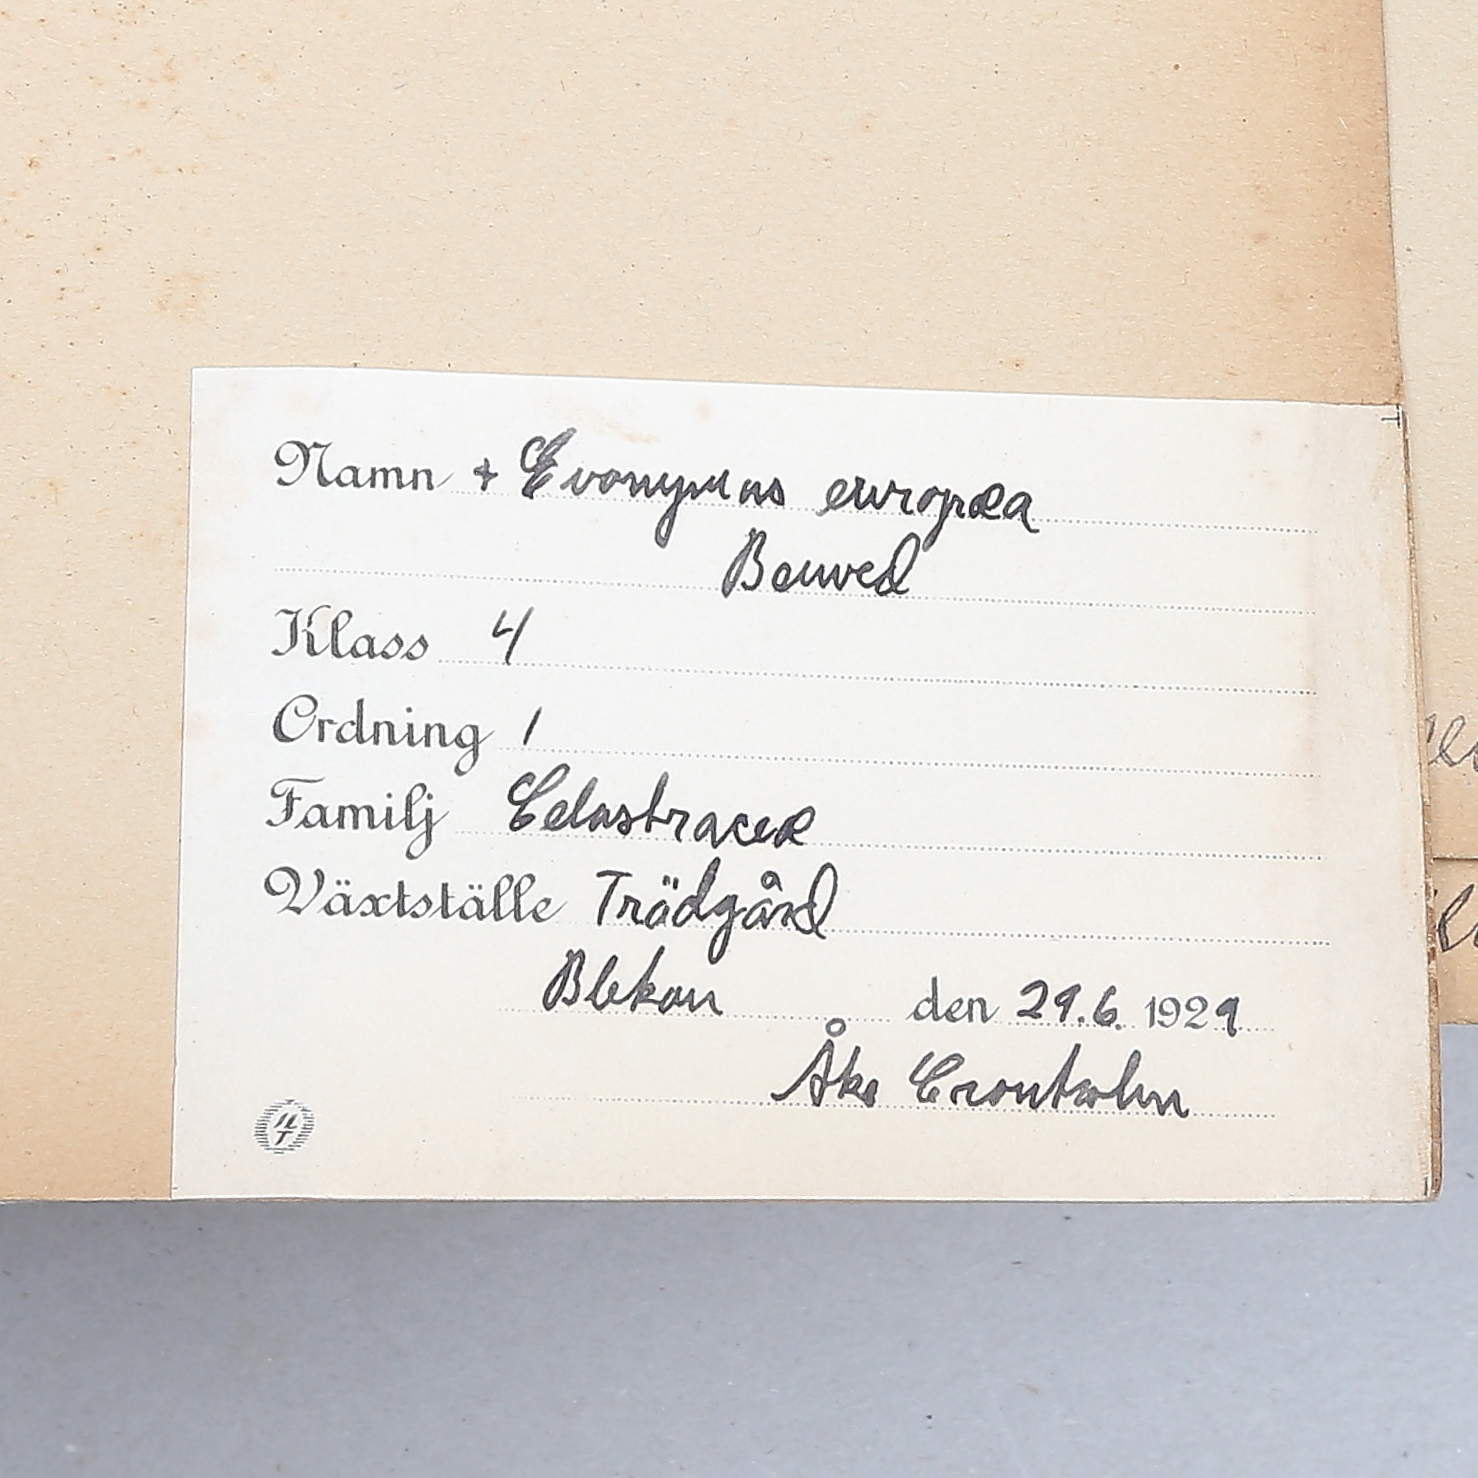 Namn + Evonymus europæa
Benved
Klass 4
Ordning 1
Familj Celastraceæ
Växtställe Trädgård
Blekan den 29.6. 1929
Åke Cronholm